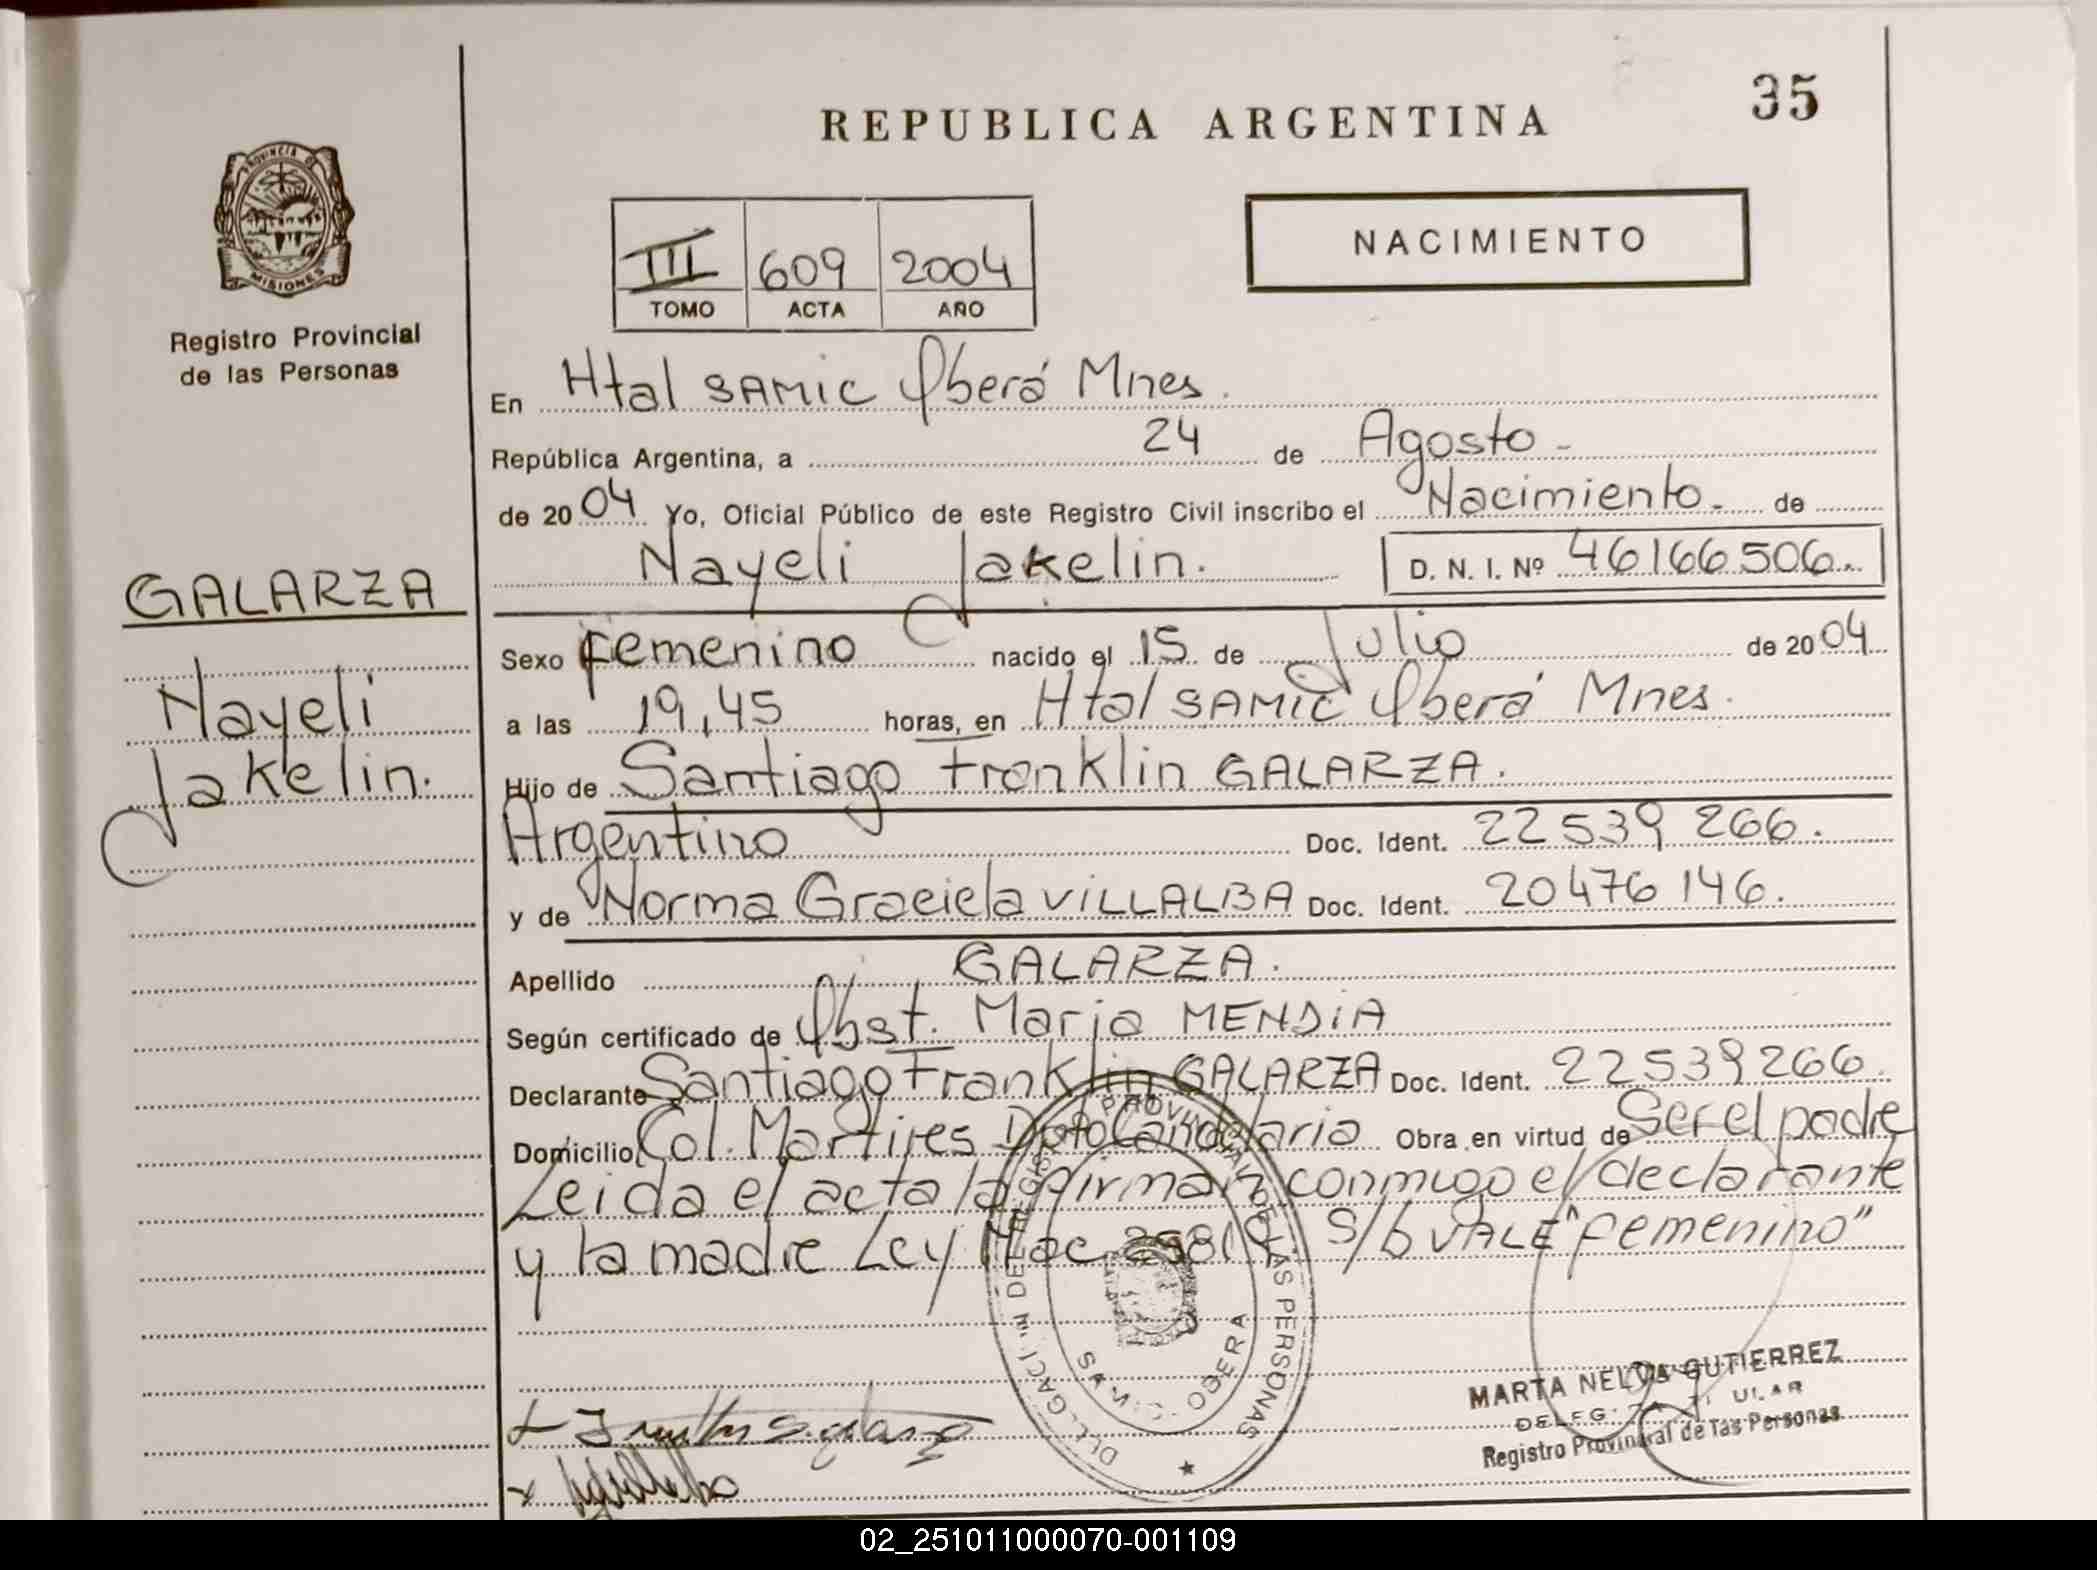 35
REPUBLICA ARGENTINA
PROVINCIA DE
MISIONES
Registro Provincial
de las Personas
NACIMIENTO
III 609 2004
TOMO ACTA AÑO
En Htal SAMIC Oberá Mnes.
República Argentina, a 24 de Agosto -
de 2004 Yo, Oficial Público de este Registro Civil inscribo el Nacimiento - de
Nayeli Jakelin. D. N. I. Nº 46166506..
GALARZA
Nayeli
Jakelin.
Sexo femenino nacido el 15 de Julio de 2004
a las 19,45 horas, en Htal SAMIC Oberá Mnes.
Hijo de Santiago Franklin GALARZA.
Argentino Doc. Ident. 22539 266.
y de Norma Graciela VILLALBA Doc. Ident. 20476 146.
Apellido GALARZA.
Según certificado de Obst. Maria MENDIA
Declarante Santiago Franklin GALARZA Doc. Ident. 22539266.
Domicilio Col. Martires Dpto Candelaria Obra en virtud de Ser el padre
Leida el acta la firman conmigo el declarante
y la madre Ley Nac 25819 S/b VALE "femenino"
DEL REGISTRO PROVINCIAL DE LAS PERSONAS
OBERA
MARTA NELVA GUTIERREZ
Registro Provincial de las Personas
02_251011000070-001109